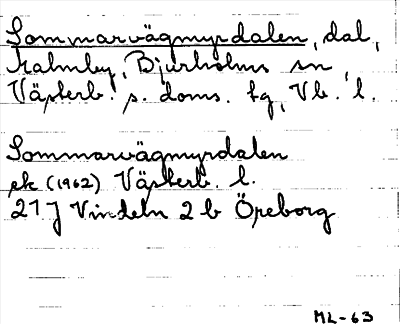 Sommarvägmyrdalen, dal,
Kalmby, Bjurholms sn,
Västerb. s. doms. tg, Vb. l.
Sommarvägmyrdalen
ek (1962) Västerb. l.
21 J Vindeln 2 b Öreborg
ML-63